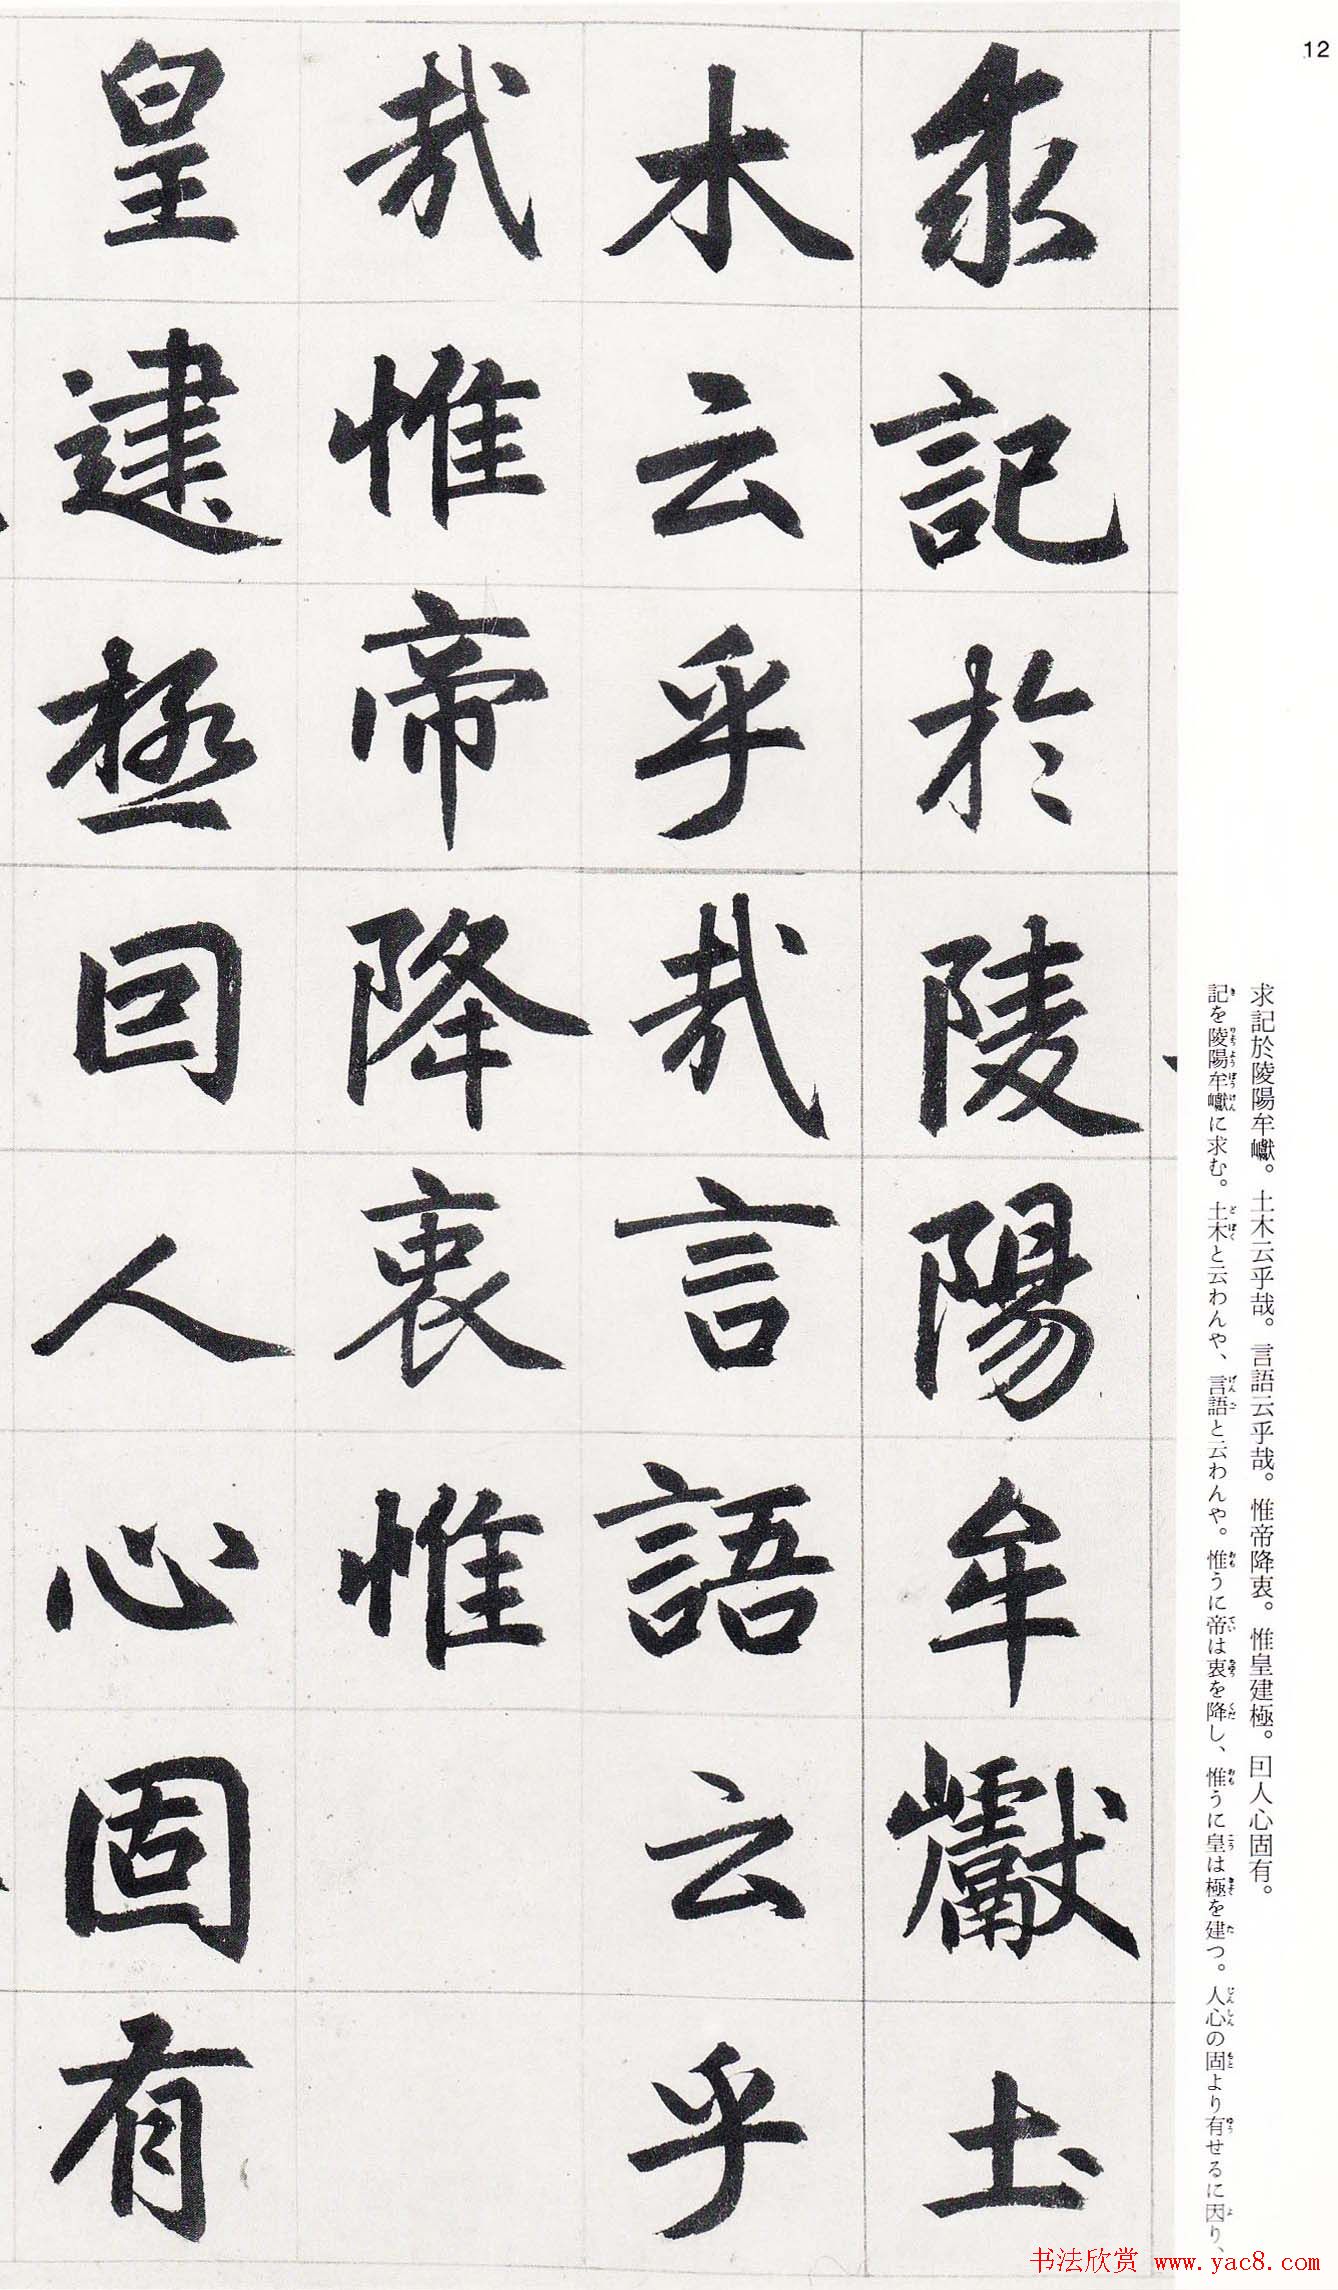 12
求記於陵陽牟巘土
木云乎哉言語云乎
哉惟帝降衷惟
皇建極囙人心固有
求記於陵陽牟巘。土木云乎哉。言語云乎哉。惟帝降衷。惟皇建極。囙人心固有。
記を陵陽牟巘に求む。土木と云わんや、言語と云わんや。惟うに帝は衷を降し、惟うに皇は極を建つ。人心の固より有せるに因り、
书法欣赏 www.yac8.com